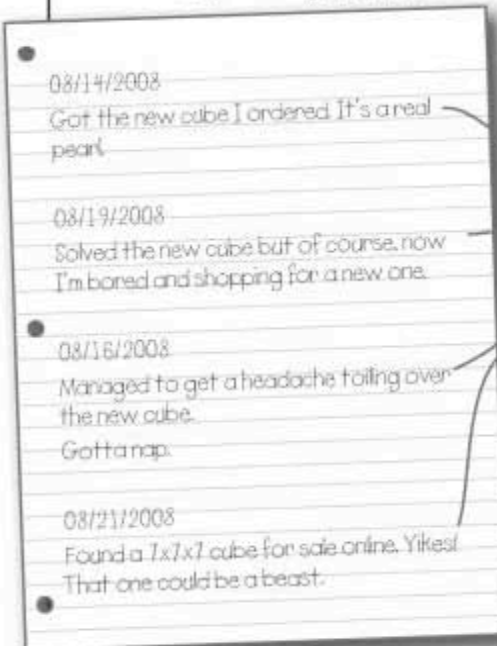 08/14/2008
Got the new cube I ordered. It's a real
pearl.
08/19/2008
Solved the new cube but of course, now
I'm bored and shopping for a new one.
08/16/2008
Managed to get a headache toiling over
the new cube.
Gotta nap.
08/21/2008
Found a 7x7x7 cube for sale online. Yikes!
That one could be a beast.